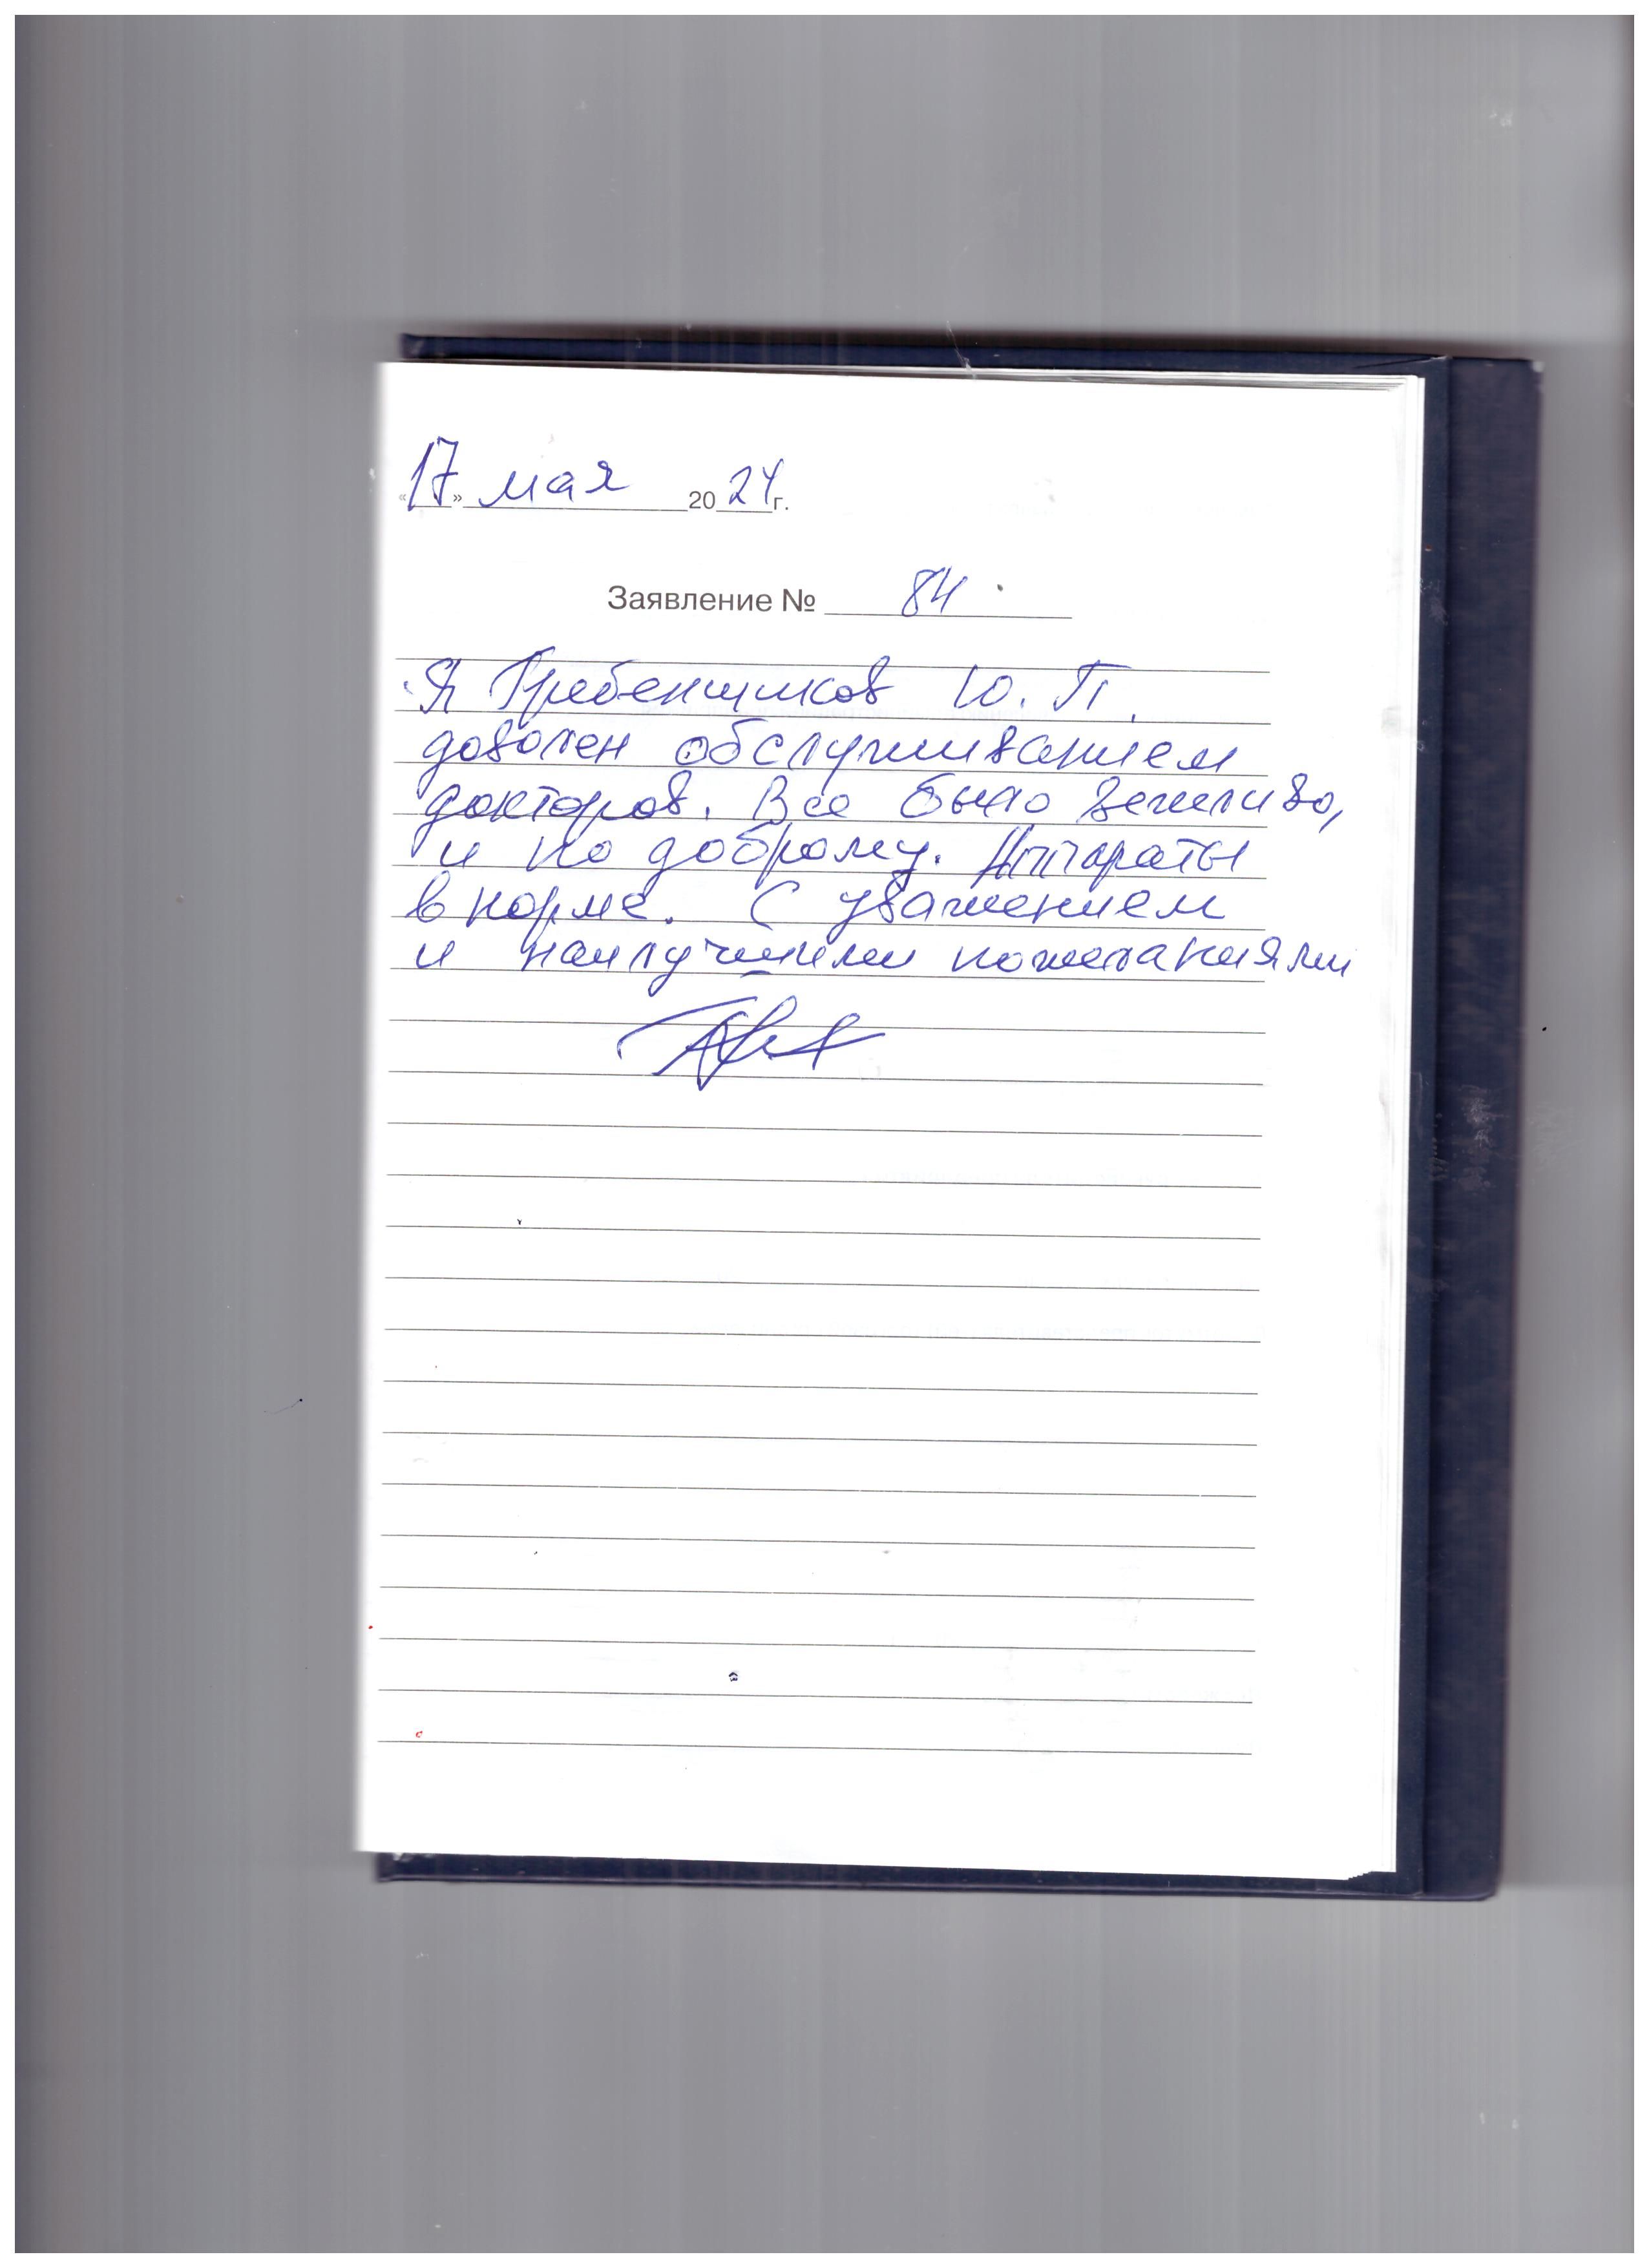 «17» мая 2024г.
Заявление № 84
Я Гребенщиков Ю. П.
доволен обслуживанием
докторов. Все было вежливо,
и по доброму. Аппараты
в норме. С уважением
и наилучшими пожеланиями